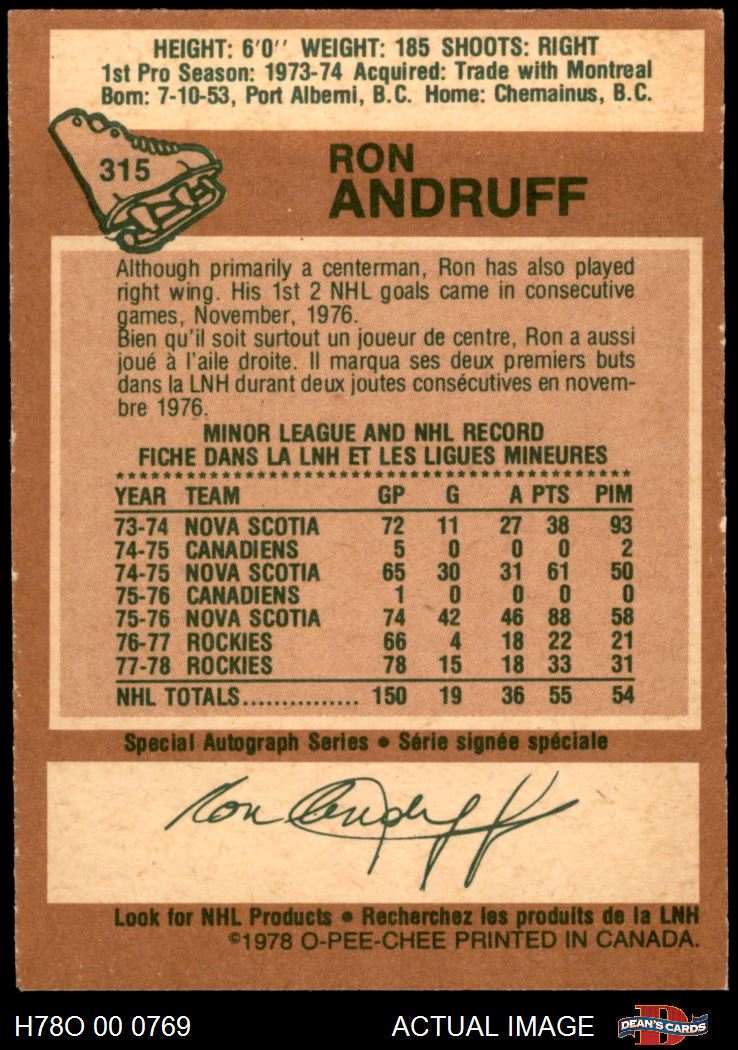 HEIGHT: 6'0'' WEIGHT: 185 SHOOTS: RIGHT
1st Pro Season: 1973-74 Acquired: Trade with Montreal
Born: 7-10-53, Port Alberni, B.C. Home: Chemainus, B.C.
315
RON
ANDRUFF
Although primarily a centerman, Ron has also played
right wing. His 1st 2 NHL goals came in consecutive
games, November, 1976.
Bien qu'il soit surtout un joueur de centre, Ron a aussi
joué à l'aile droite. Il marqua ses deux premiers buts
dans la LNH durant deux joutes consécutives en novem-
bre 1976.
MINOR LEAGUE AND NHL RECORD
FICHE DANS LA LNH ET LES LIGUES MINEURES
YEAR TEAM GP G A PTS PIM
73-74 NOVA SCOTIA 72 11 27 38 93
74-75 CANADIENS 5 0 0 0 2
74-75 NOVA SCOTIA 65 30 31 61 50
75-76 CANADIENS 1 0 0 0 0
75-76 NOVA SCOTIA 74 42 46 88 58
76-77 ROCKIES 66 4 18 22 21
77-78 ROCKIES 78 15 18 33 31
NHL TOTALS............... 150 19 36 55 54
Special Autograph Series • Série signée spéciale
Ron Andruff
Look for NHL Products • Recherchez les produits de la LNH
©1978 O-PEE-CHEE PRINTED IN CANADA.
H78O 00 0769 ACTUAL IMAGE DEAN'S CARDS